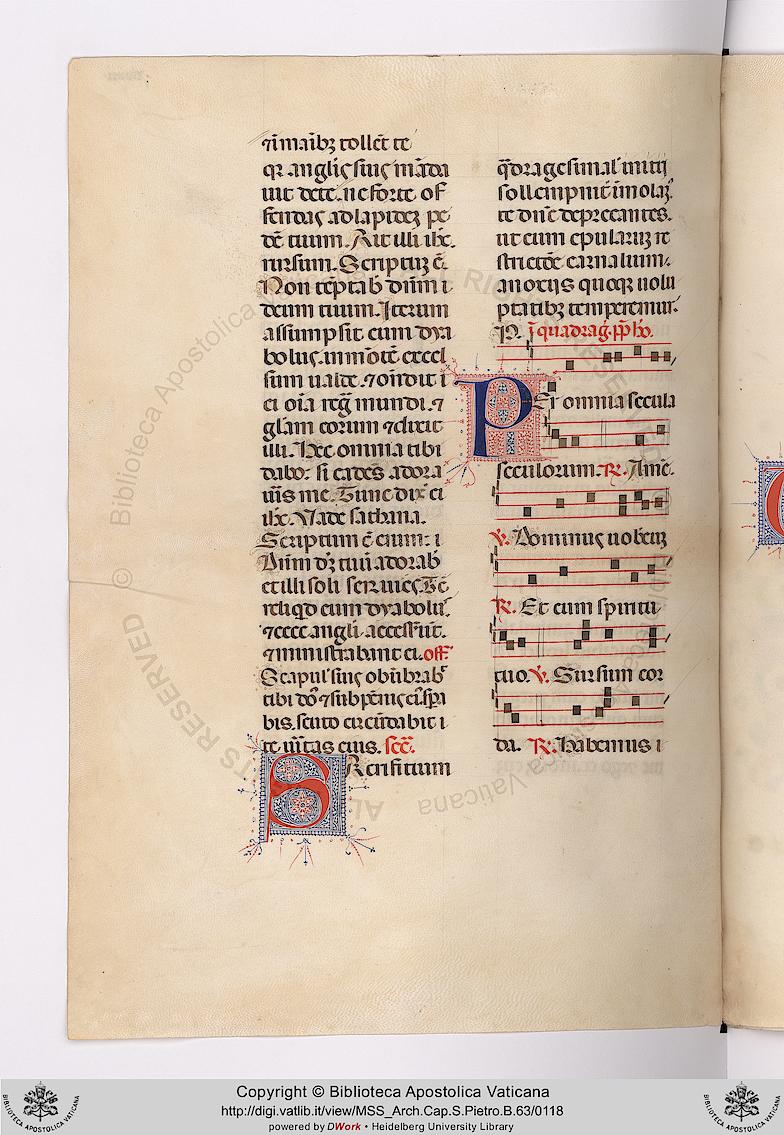 ⁊ ī manibꝫ tollēt te
qꝛ angľis suis māda
uit de te. ne forte of
fendas ad lapidez pe
dē tuum. Ait illi iħc.
rursum. Scriptuꝫ ē.
Non tēptab̄ dūm i
deum tuum. Iterum
assumpsit eum dya
bolus. in mōtē excel
sum ualde. ⁊ on̄dit i
ei oīa reḡ mundi. ⁊
glam eorum ⁊ dixit
illi. Hec omnia tibi
dabo. si cadēs adora
uīs me. Tunc dix̄ ei
iħc. Vade sathana.
Scriptum ē eīum: i
Dūm dꝫ tuū adorab̄
et illi soli seruies. Tē
reliq̄d eum dyabolus.
⁊ ecce angli accesser̄ūt.
⁊ ministrabant ei. off.
Scapul̄ suis obūbrab̄
tibi dōs ⁊ sub pēnis ei᷒ spa
bis. scuto circūdabit i
te uītas eius. sec̄.
Acrifitium
q̄dragesimal̄ initij
sollempnit̄ īmolam᷒
te dn̄e deprecantes.
ut cum epularuꝫ re
strictōe carnalium.
a noxijs quoqꝫ uolu
ptatibꝫ temperemur.
P. ī quadrag. pp̄ho.
Per omnia secula
seculorum. R. Amē.
V. Dominus uobcuꝫ
R. Et cum spiritu
tuo. V. Sursum cor
da. R. Habemus i
S
© Biblioteca Apostolica Vaticana
ALL RIGHTS RESERVED
Copyright © Biblioteca Apostolica Vaticana
http://digi.vatlib.it/view/MSS_Arch.Cap.S.Pietro.B.63/0118
powered by DWork • Heidelberg University Library
BIBLIOTECA APOSTOLICA VATICANA
BIBLIOTECA APOSTOLICA VATICANA